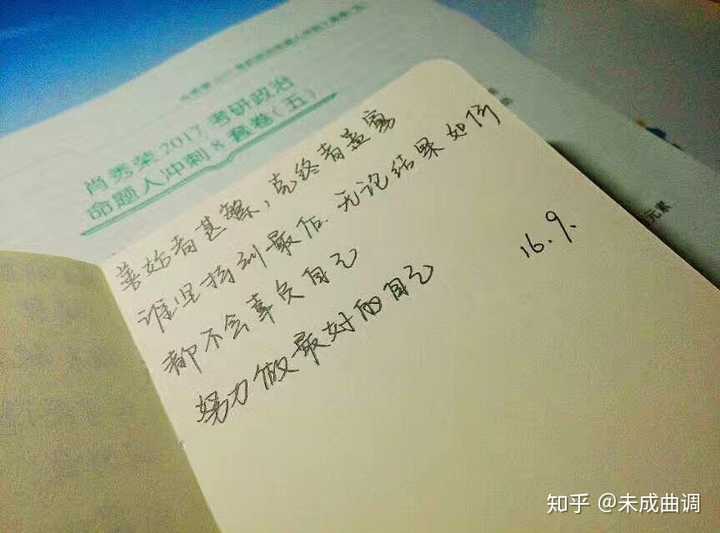 肖秀荣2017考研政治
命题人冲刺8套卷(五)
善始者甚繁，克终者盖寡
谁坚持到最后.无论结果如何
都不会辜负自己
努力做最好的自己
16.9.
元素
知乎 @未成曲调